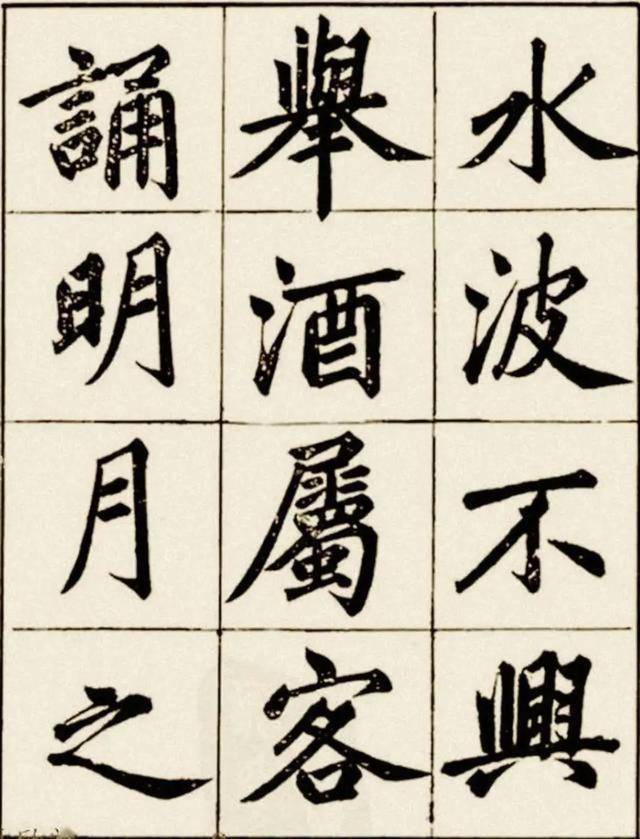 水波不興
舉酒屬客
誦明月之